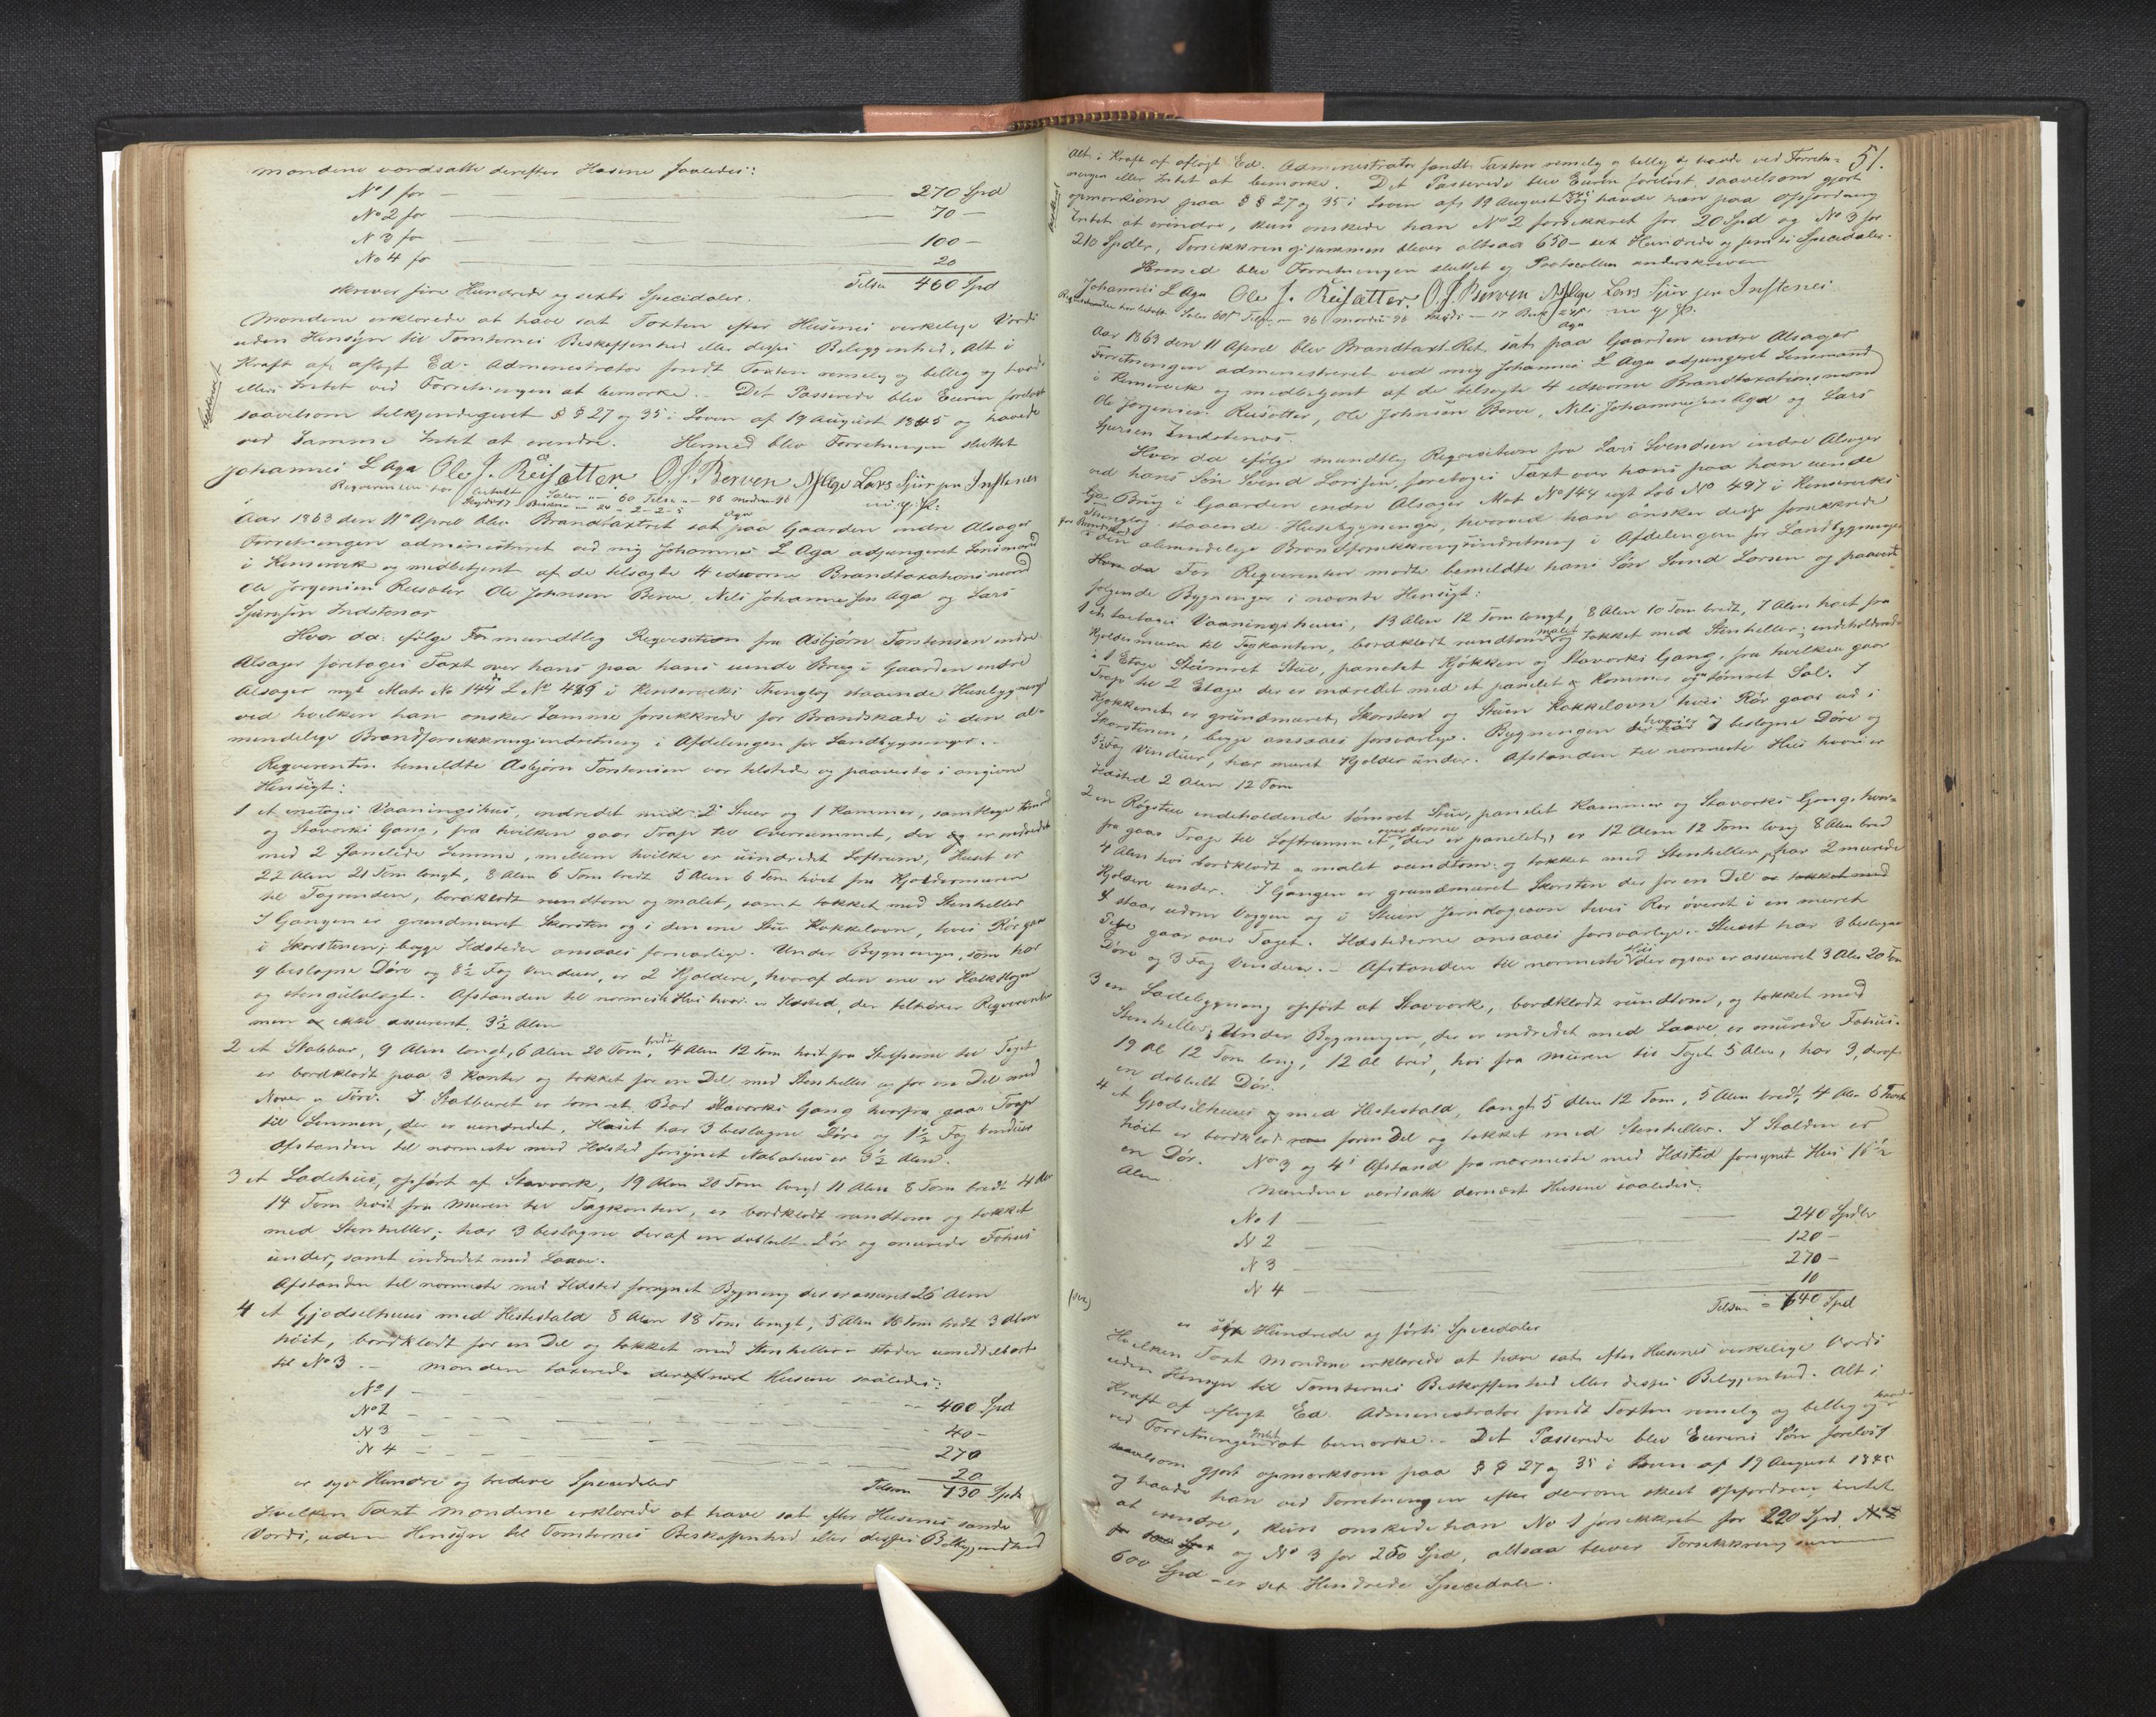 Mændene værdsatte derefter Husene saaledes:
No 1 for 270 Spd
No 2 for 70 —
N 3 for 100 —
No 4 for 20
Tilsa 460 Spd
skriver fire Hundrede og sexti Speciedaler.
Mændene erklærede at have sat Taxten efter Husenes verkelige Værdi
uden Hensyn til Tomternes Beskaffenhed eller disses Beleggenhed, Alt i
Kraft af aflagt Ed. Administrator fandt Taxten remelig og bellig og havde
ellers Intet ved Forretningen at bemærke. Det Passerede blev Eieren forelæst
saavelsom tilkjendegivet §§ 27 og 35 i Loven af 19 August 1845 og havde
ved Samme Intet at erendre. Hermed blev Forretningen sluttet
Johannes L Aga Ole J. Reisæter O. J. Berven Lars Sjursen Instenes
Aar 1863 den 11te April blev Brandtaxtret sat paa Gaarden indre Alsager
Forretningen administreret ved mig Johannes L Aga adjungeret Lensmand
i Kinservik og medbetjent af de tilsagte 4 edsvorne Brandtaxationsmænd
Ole Jørgensen Reisæter Ole Johnsen Berve Nils Johannessen Aga og Lars
Sjursen Indstenæs
Hvor da: ifølge mundtlig Reqvisition fra Asbjørn Torstensen indre
Alsager foretoges Taxt over hans paa hans eiende Brug i Gaarden indre
Alsager nyt Matr No 144 L No 489 i Kinserviks Thinglag staaende Husebygninger
ved hvilken han ønsker Samme forsikkrede for Brandskade i den al-
mindelige Brandforsikkringsindretning i Afdelingen for Landbygninger.
Reqvirenten bemeldte Asbjørn Torstensen var tilstede og paaviste i angivne
Hensigt:
1 et enetages Vaaningshus, indredet med 2 Stuer og 1 Kammer, samtlige
og Stavværks Gang, fra hvilken gaar Trap til Overrummet, der er indredet
med 2 panelede Lemme, mellem hvilke er uindredet Loftrum, Huset er
22 Alen 21 Tom langt, 8 Alen 6 Tom bredt 5 Alen 6 Tom høit fra Kjeldermuren
til Tagranden, bordklædt rundtom og malet, samt tækket med Stenheller
I Gangen er grundmuret Skorsten og i den ene Stue Kakkelovn, hvis Rør gaar
i Skorstenen, begge Ildsteder ansaaes forsvarlige. Under Bygningen, som har
9 beslagne Døre og 8½ Fag Vinduer, er 2 Kjeldere, hvoraf den ene er
Afstanden til nærmeste Hus hvori er Ildsted, der tilhører Reqvirenten
men ikke assureret. 3½ Alen
2 et Stabbur, 9 Alen langt, 6 Alen 20 Tom bredt, 4 Alen 12 Tom høit fra Stolperne til Taget
er bordklædt paa 3 Kanter og tækket for en Del med Stenheller og for en Del med
Næver og Törv. I Stabburet er tømret Bod Stavværks Gang hvorfra gaar Trap
til Lemmen, der er uindredet. Huset har 3 beslagne Døre og 1½ Fag Vinduer
Afstanden til nærmeste med Ildsted forsynet Nabohuus er 3½ Alen.
3 et Ladehus, opført af Stavværk, 19 Alen 20 Tom langt 11 Alen 8 Tom bredt 4 Alen
14 Tom høit fra Muren til Tagkanten, er bordklædt rundtom og tækket
med Stenheller; har 3 beslagne deraf en dobbelt Dør og murede Fæhus
under, samt indredet med Laave.
Afstanden til nærmeste med Ildsted forsynet Bygning der er assureret 26 Alen
4 et Gjødselhuus med Hestestald 8 Alen 18 Tom langt, 5 Alen 18 Tom bredt 3 Alen
høit, bordklædt for en Del og tækket med Stenheller støder umeddelbart
til No 3. — Mændene taxerede dernæst Husene saaledes:
No 1 400 Spd
No 2 40 —
N 3 270
N 4 20
er syv Hundre og tredeve Speciedaler Tilsam 730 Spd
Hvilken Taxt Mændene erklærede at have sat efter Husenes sande
Værdi, uden Hensyn til Tomternes Beskaffenhed eller disses Beleggenhed
51.
Alt i Kraft af aflagt Ed. Administrator fandt Taxten remelig og bellig og havde ved Forret-
ningen ellers Intet at bemærke. Det Passerede blev Eieren forelæst, saavelsom gjort
opmærksom paa §§ 27 og 35 i Loven af 19 August 1845 havde han paa Opfordring
Intet at erindre, kun ønskede han No 2 forsikkret for 20 Spd og No 3 for
210 Spdlr, Forsikkringssummen bliver altsaa 650 — sex Hundrede og femti Speciedaler.
Hermed blev Forretningen sluttet og Protocollen underskreven
Johannes L Aga Ole J. Reisæter. O. J. Berven Lars Sjursen Instenes
Aar 1863 den 11 April blev Brandtaxt Ret sat paa Gaarden indre Alsager
Forretningen administreret ved mig Johannes L Aga adjungeret Lensmand
i Kinservik og medbetjent af de tilsagte 4 edsvorne Brandtaxationsmænd
Ole Jørgensen Reisæter, Ole Johnsen Berve, Nils Johannessen Aga og Lars
Sjursen Indstenæs.
Hvor da ifølge mundtlig Reqvisition fra Lars Svendsen indre Alsager
ved hans Søn Svend Larsen, foretoges Taxt over hans paa han eiende
Brug i Gaarden indre Alsager Mat No 144 Løb No 497 i Kinserviks
Thinglag staaende Husebygninger, hvorved han ønsker disse forsikkrede
for Brandskade i den almindelige Brandforsikkringsindretning i Afdelingen for Landbygninger
For Reqvirenten mødte bemeldte hans Søn Svend Larsen og paaviste
følgende Bygninger i nævnte Hensigt:
1 et toetages Vaaningshuus, 13 Alen 12 Tom langt, 8 Alen 10 Tom bredt, 7 Alen høit fra
Kjeldermuren til Tagkanten, bordklædt rundtom malet og tækket med Stenheller; indeholdende
i 1 Etage Tømret Stue, panelet Kjøkken og Stavværks Gang, fra hvilken gaar
Trap til 2 Etage der er indredet med et panelet Kammer og en tømret Sal. I
Kjøkkenet er grundmuret Skorsten og Stuen Kakkelovn hvis Rør gaar ud i
Skorstenen, begge ansaaes forsvarlige. Bygningen hvori er 7 beslagne Døre og
5½ Fag Vinduer, har muret Kjelder under. Afstanden til nærmeste Hus hvori er
Ildsted 2 Alen 12 Tom
2 en Røgstue indeholdende tømret Stue, panelet Kammer og Stavværks Gang, hvor-
fra gaar Trap til Loftrummet over denne, der er panelet, er 12 Alen 12 Tom lang 8 Alen bred
4 Alen høi bordklædt og malet rundtom og tækket med Stenheller, har 2 murede
Kjeldere under. I Gangen er grundmuret Skorsten der for en Del
staar udom Væggen og i Stuen Jernkogeovn hvis Rør øverst i en muret
Pibe gaar over Taget. Ildstederne ansaaes forsvarlige. Huset har 3 beslagne
Døre og 3 Fag Vinduer. — Afstanden til nærmeste Hus der ogsaa er assureret 3 Alen 20 Tom
3 en Ladebygning opført af Stavværk, bordklædt rundtom, og tækket med
Stenheller; Under Bygningen, der er indredet med Laave, er murede Fæhus.
19 Al 12 Tom lang, 12 Al bred, høi fra Muren til Taget 5 Alen, har 3, deraf
en dobbelt Dør.
4 et Gjødselhuus med Hestestald, langt 5 Alen 12 Tom, 5 Alen bredt, 4 Alen 6 Tom
høit er bordklædt for en Del og tækket med Stenheller. I Stalden er
en Dør. No 3 og 4s Afstand fra nærmeste med Ildsted forsynet Hus 16½
Alen.
Mændene værdsatte dernæst Husene saaledes:
No 1 240 Spdlr
N 2 120 —
N 3 270 —
N 4 10
Tilsam = 640 Spd
er sex Hundrede og førti Speciedaler
Hvilken Taxt Mændene erklærede at have sat efter Husenes verkelige Værdi
uden Hensyn til Tomternes Beskaffenhed eller disses Beleggenhed. Alt i
Kraft af aflagt Ed. Administrator fandt Taxten remelig og bellig og havde
ved Forretningen Intet at bemærke. — Det Passerede blev Eierens Søn forelæst
saavelsom gjort opmærksom paa §§ 27 og 35 i Loven af 19 August 1845
og havde han ved Forretningen efter derom skeet Opfordren intet
at erendre, kun ønskede han No 1 forsikkret for 220 Spd,
og No 3 for 250 Spd, altsaa bliver Forsikkringssummen
600 Spd — er sex Hundrede Speciedaler.